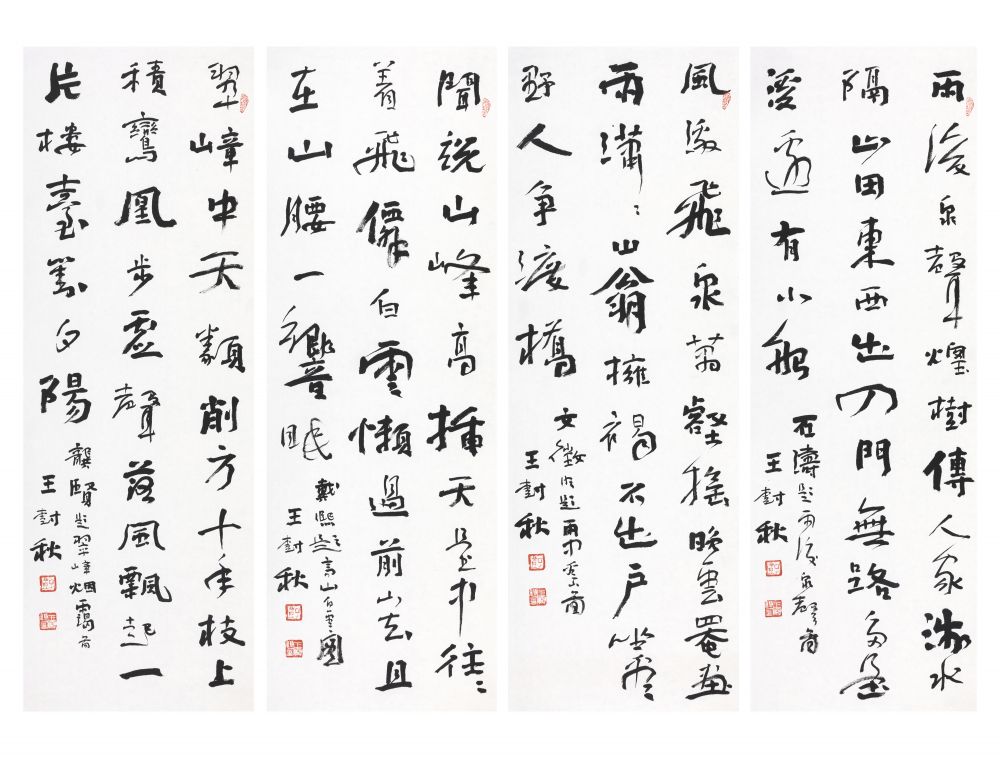 雨後泉聲煙樹傳人家水
隔山田東西出入門無路多屋
邊有小船
石濤題雨後泉聲圖
王封秋
風激飛泉萬壑摇晚雲罨畫
雨瀟々山翁擁褐不出戶坐看
野人争渡橋
文徵明題雨中圖
王封秋
聞說山峰高插天是往々
着飛僊白雲懶過前山去且
在山腰一覺眠
戴熙題高山白雲圖
王封秋
翠嶂中天類削方十年枝上
積鸞凰步虛聲落風飄起一
片樓臺對夕陽
龔賢題翠嶂烟靄圖
王封秋